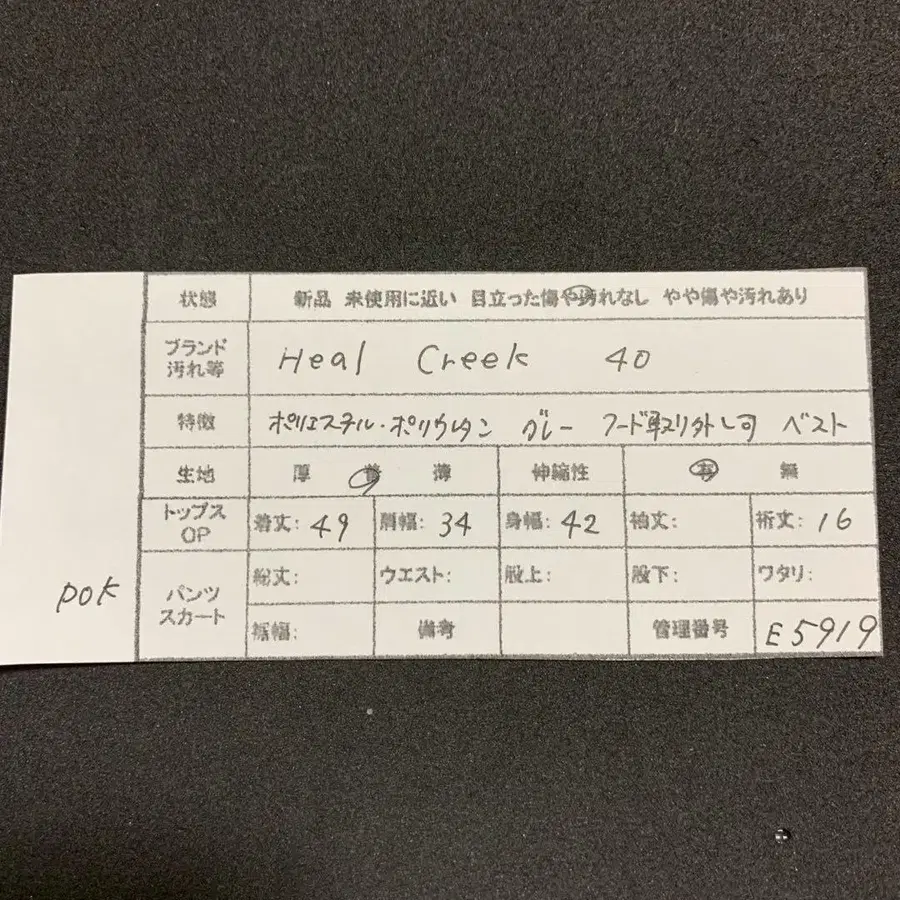 状態 新品 未使用に近い 目立った傷や汚れなし やや傷や汚れあり
ブランド
汚れ等
Heal Creek 40
特徴 ポリエステル・ポリウレタン グレー フード取り外し可 ベスト
生地 厚 普 薄 伸縮性 有 無
トップス
OP
着丈: 49 肩幅: 34 身幅: 42 袖丈: 裄丈: 16
パンツ
スカート
総丈: ウエスト: 股上: 股下: ワタリ:
裾幅: 備考 管理番号 E5919
POK